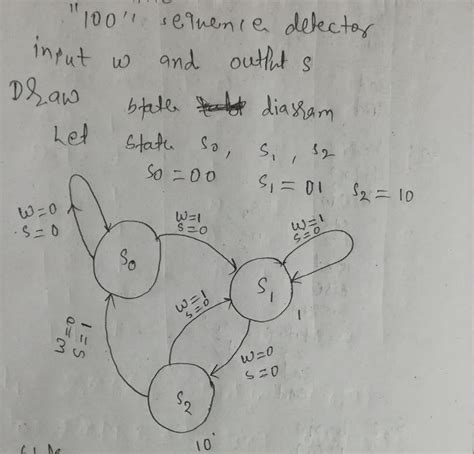 "100" sequence detector
input w and output s
Draw state diagram
Let state S0, S1, S2
S0 = 00 S1 = 01 S2 = 10
w=0
s=0
w=1
s=0
w=1
s=0
S0
S1
1
w=1
s=0
w=0
s=1
w=0
s=0
S2
10